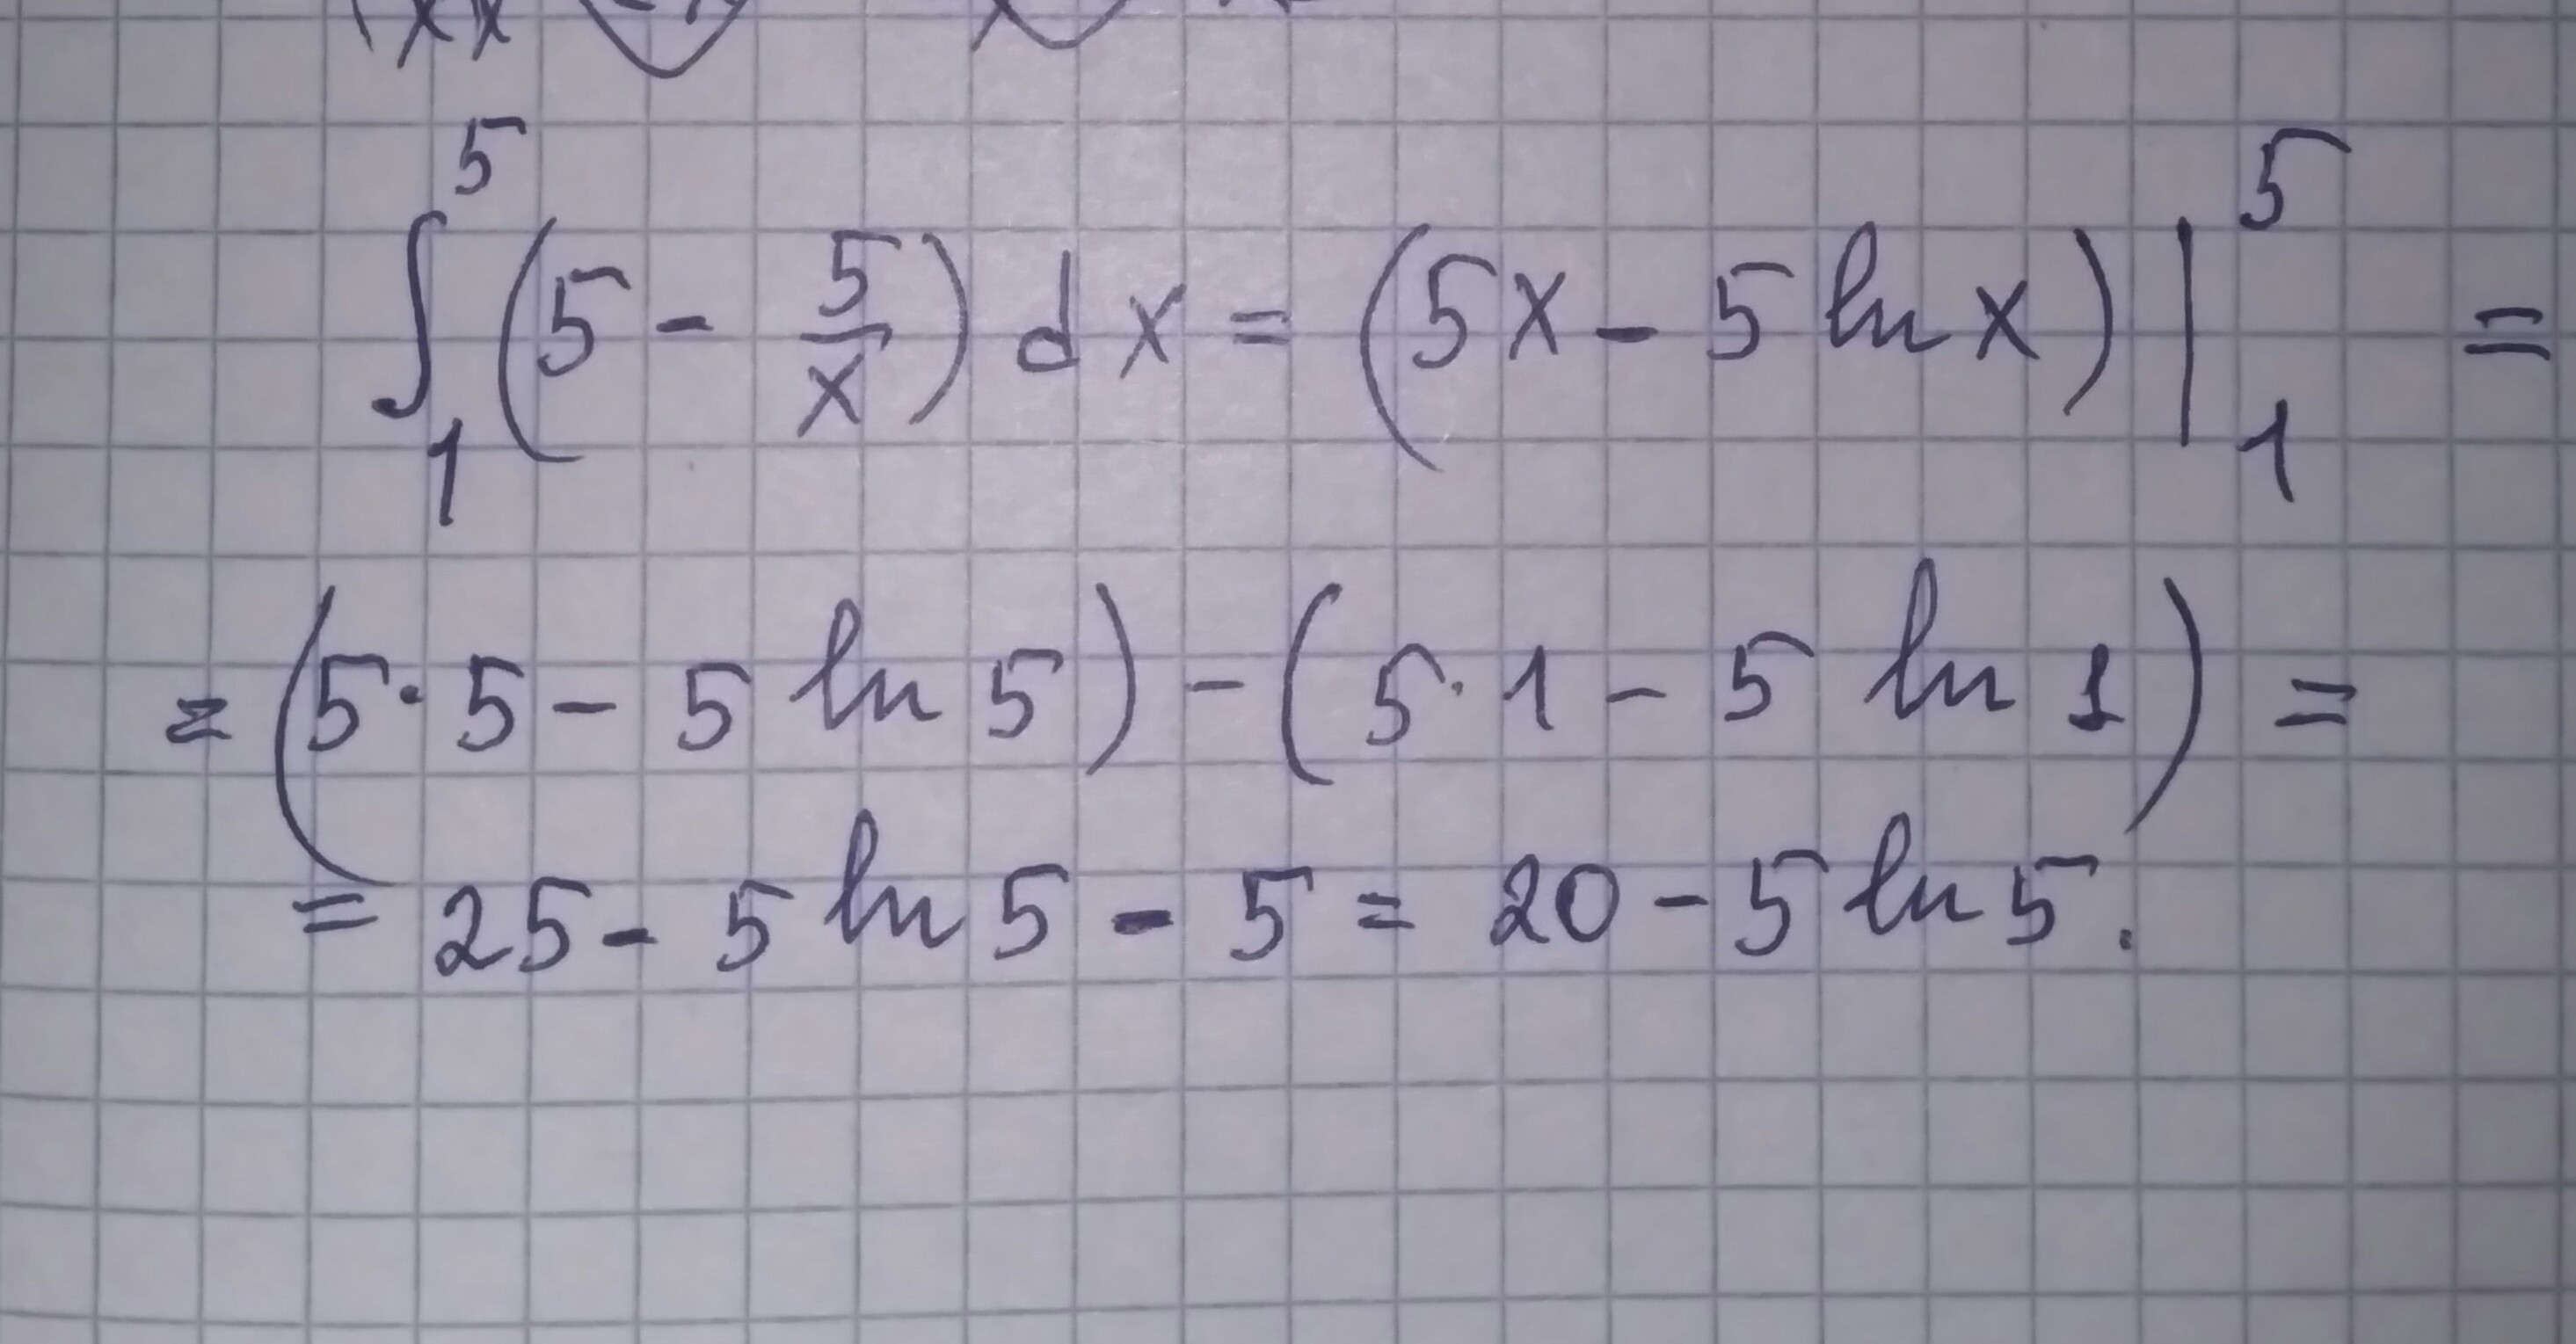 ∫₁⁵ (5 - 5/x) dx = (5x - 5 ln x) |₁⁵ =
= (5·5 - 5 ln 5) - (5·1 - 5 ln 1) =
= 25 - 5 ln 5 - 5 = 20 - 5 ln 5.